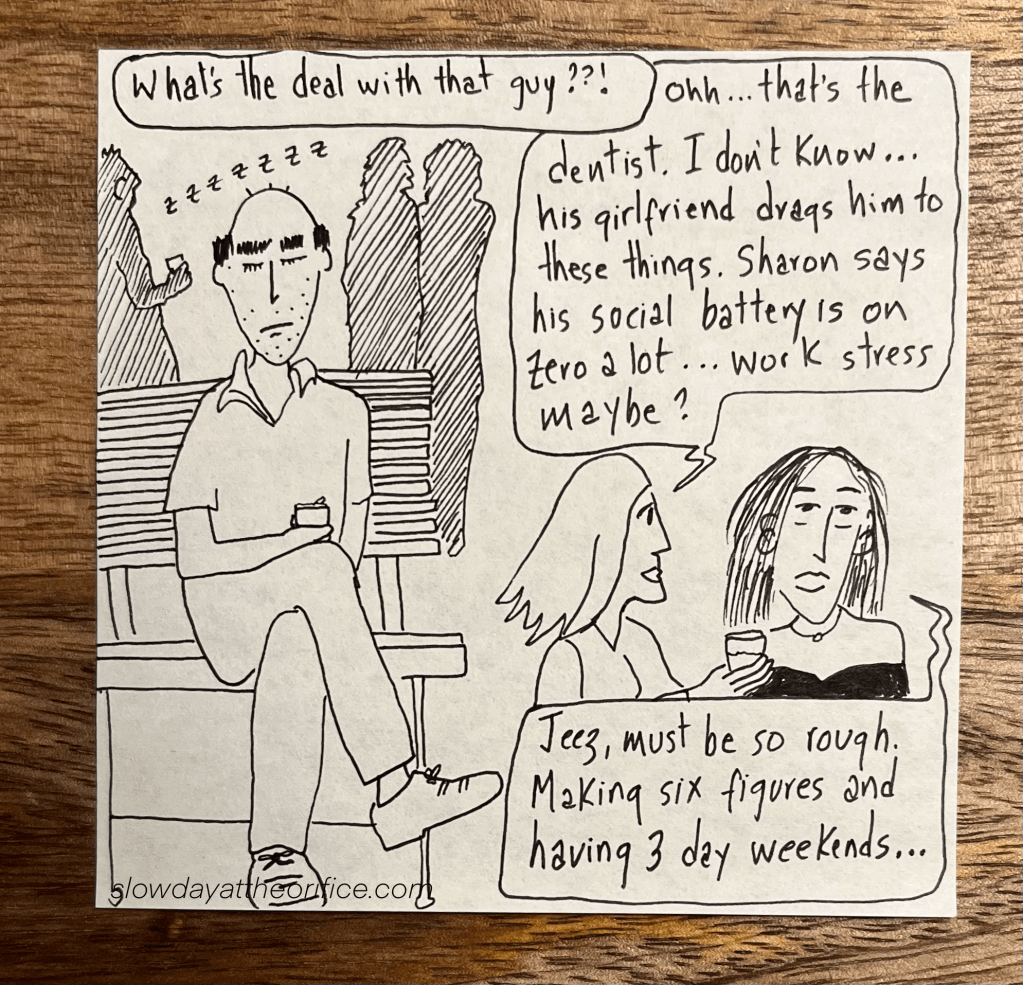 What's the deal with that guy??!
ohh...that's the
dentist. I don't know...
his girlfriend drags him to
these things. Sharon says
his social battery is on
zero a lot... work stress
maybe?
z z z z z z z
Jeez, must be so rough.
Making six figures and
having 3 day weekends...
slowdayattheorifice.com